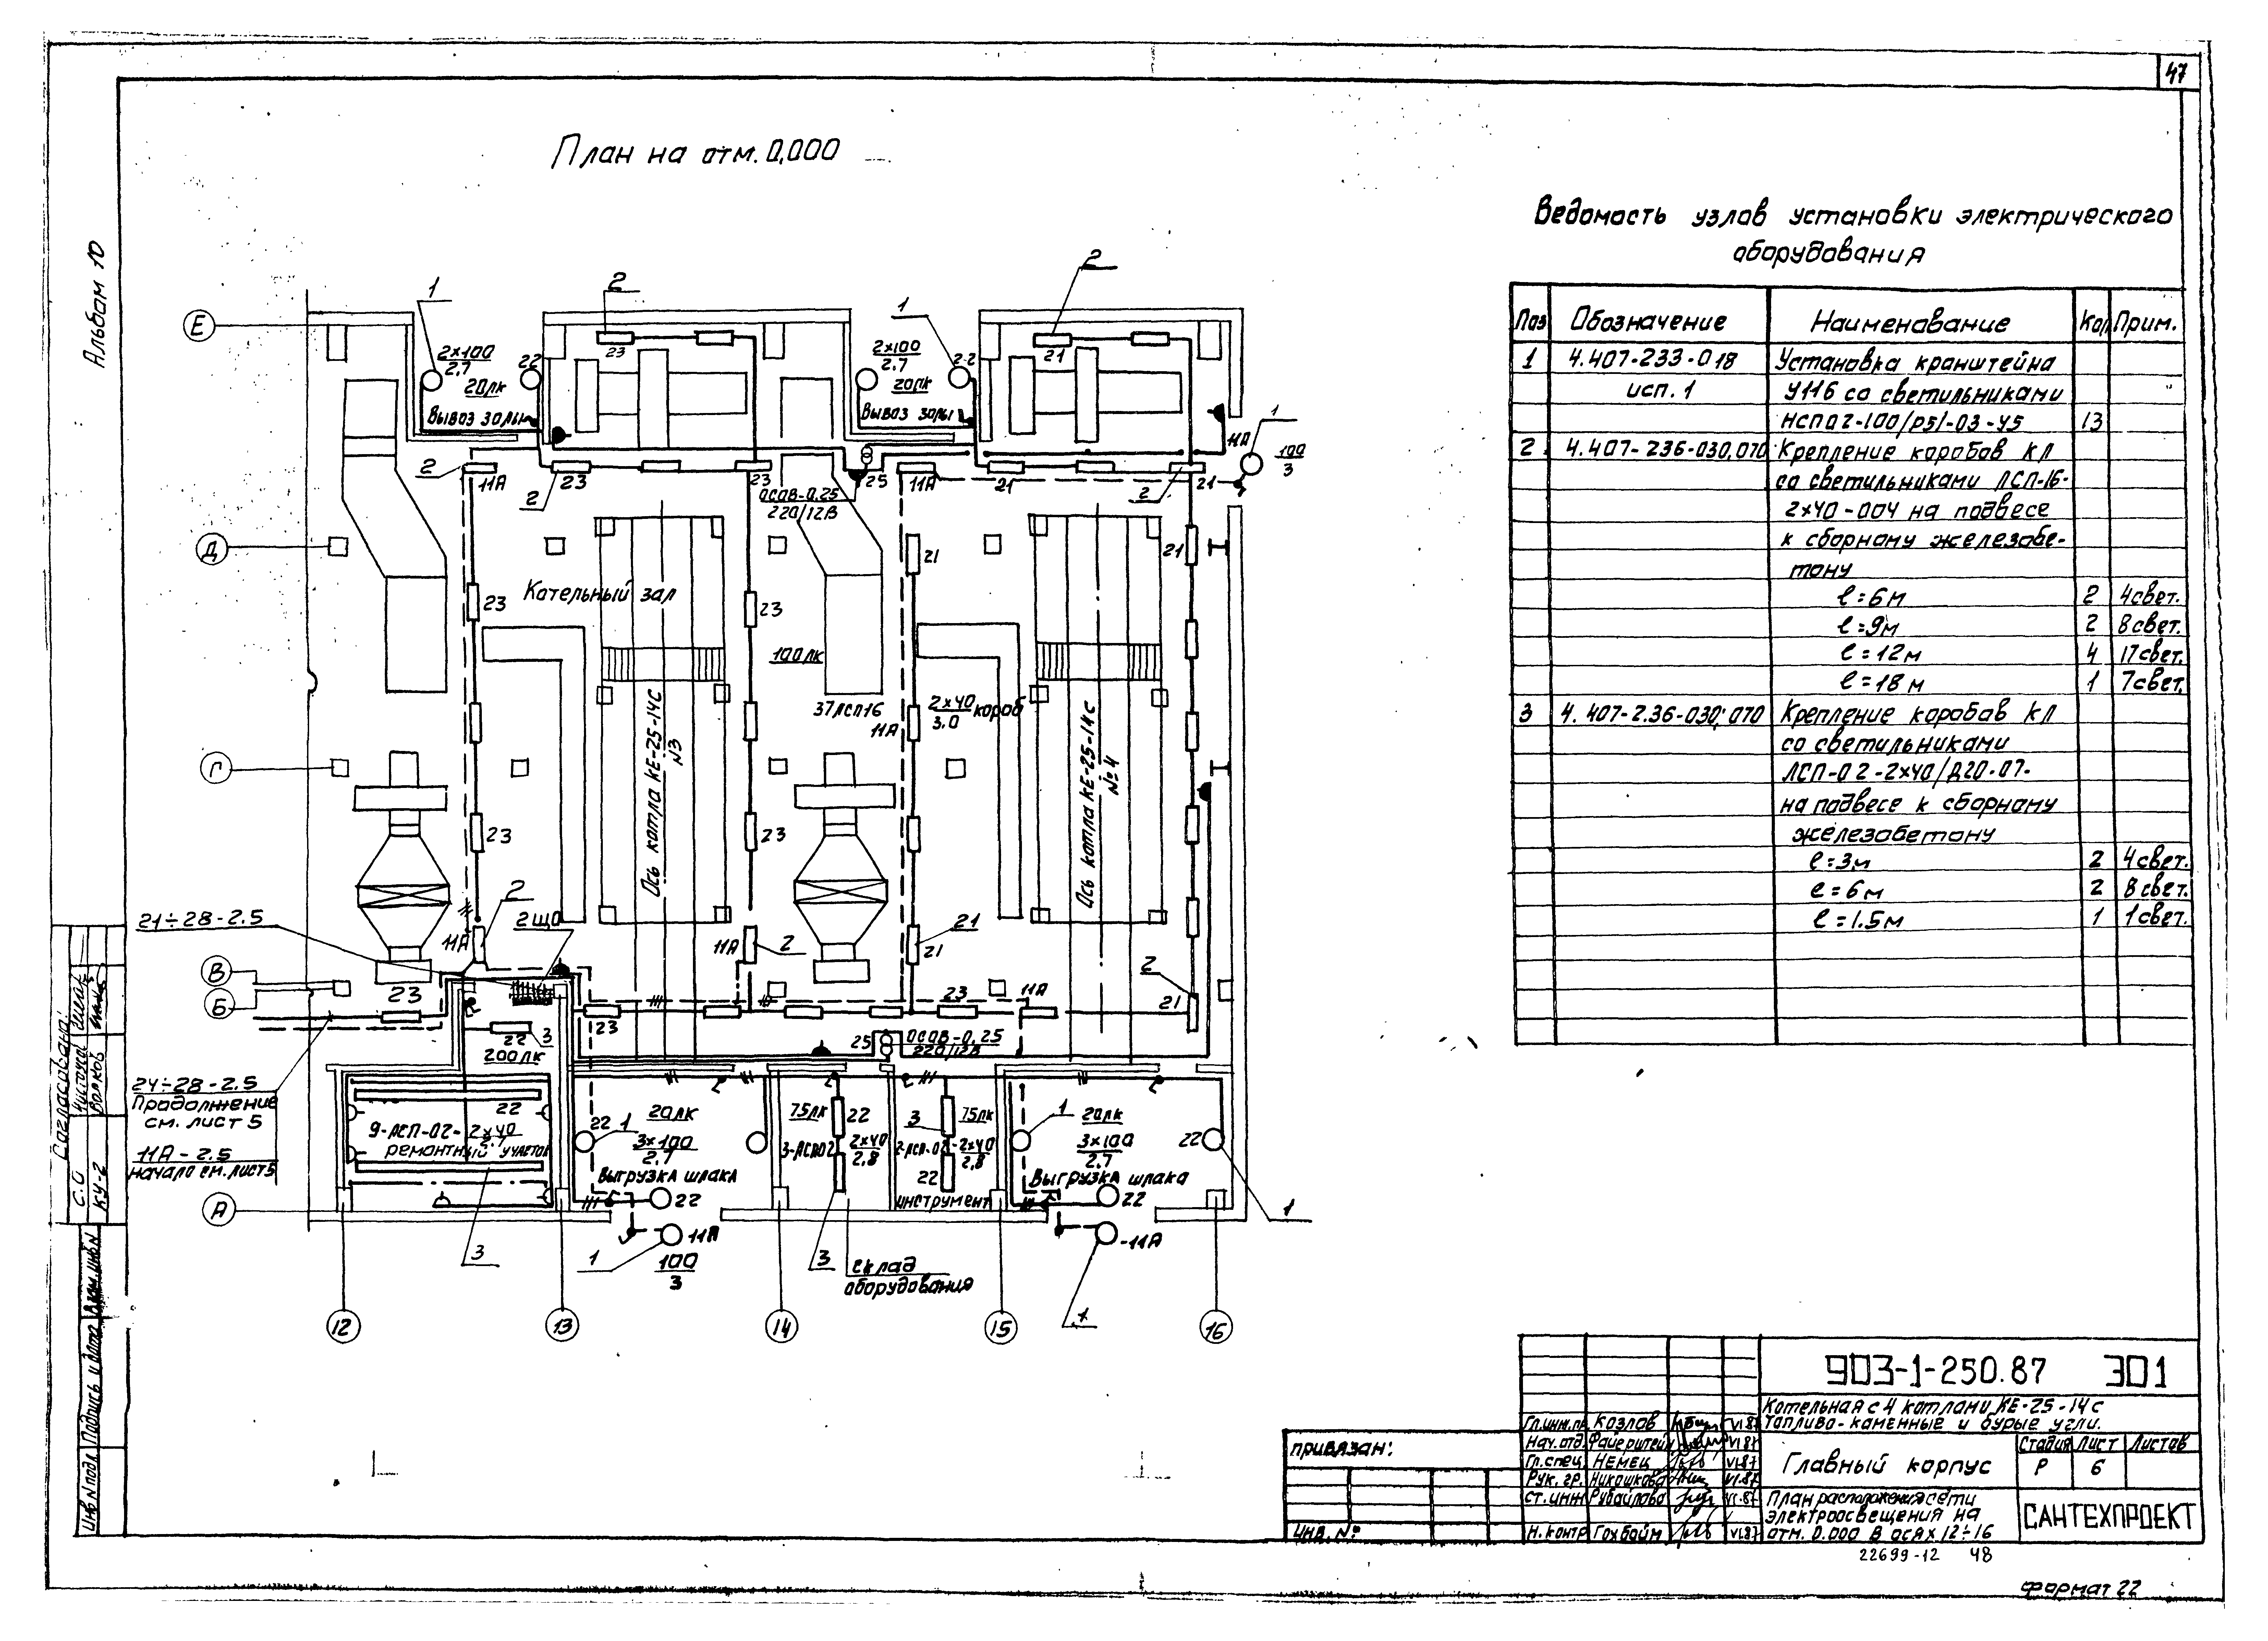 47
Альбом 10
План на отм. 0,000
Ведомость узлов установки электрического
оборудования
Поз Обозначение Наименование Кол Прим.
1 4.407-233-018 Установка кранштейна
исп. 1 У116 со светильниками
НСП02-100/Р51-03-У5 13
2 4.407-236-030,070 Крепление коробов КЛ
со светильниками ЛСП-16-
2×40-004 на подвесе
к сборному железобе-
тону
ℓ=6м 2 4свет.
ℓ=9м 2 8свет.
ℓ=12м 4 17свет.
ℓ=18м 1 7свет.
3 4.407-236-030;070 Крепление коробов КЛ
со светильниками
ЛСП-02-2×40/Д20-07-
на подвесе к сборному
железобетону
ℓ=3м 2 4свет.
ℓ=6м 2 8свет.
ℓ=1.5м 1 1свет.
Е
Д
Г
В
Б
А
12
13
14
15
16
1
2
1
2
2×100
2,7
20лк
22
Вывоз золы
23
2×100
2,7
20лк
22
Вывоз золы
21
11А
1
100
3
2
11А
2
23
23
ОСОВ-0.25
220/12В
25
11А
21
2
21
21
21
23
Котельный зал
23
100лк
37ЛСП16 2×40 короб
3.0
11А
Ось котла КЕ-25-14С
N3
Ось котла КЕ-25-14С
№4
23
23
21÷28-2.5
11А
2
2ЩО
11А
2
21
21
2
21
23
23
23
11А
22
3
200лк
25
ОСОВ-0.25
220/12В
24÷28-2.5
Продолжение
см. лист 5
11А-2.5
начало см. лист5
22
9-ЛСП-02-2×40
2.7
ремонтный участок
3
22
1
20лк
3×100
2.7
Выгрузка шлака
22
11А
1
100
3
75лк
22
3-ЛСП02 2×40
2,8
3
склад
оборудования
75лк
3
2-ЛСП-02-2×40
2,8
22
инструмент
1
20лк
3×100
2.7
22
Выгрузка шлака
22
-11А
1
1
Согласовано:
С.О
КУ-2
Волков
Инв N подл Подпись и дата Взам.инв N
привязан:
инв. №
903-1-250.87 ЭО1
Котельная с 4 котлами КЕ-25-14с
Топливо-каменные и бурые угли.
Гл.инж.пр. Козлов VI.87
Нач.отд. Файерштейн VI87
Гл.спец. Немец VI-87
Рук.гр. Никошкова VI.87
ст.инж Рубайлова VI-87
Н.контр Гохбойм VI87
Главный корпус
Стадия Лист Листов
Р 6
План расположения сети
электроосвещения на
отм. 0.000 в осях 12÷16
САНТЕХПРОЕКТ
22699-12 48
Формат 22